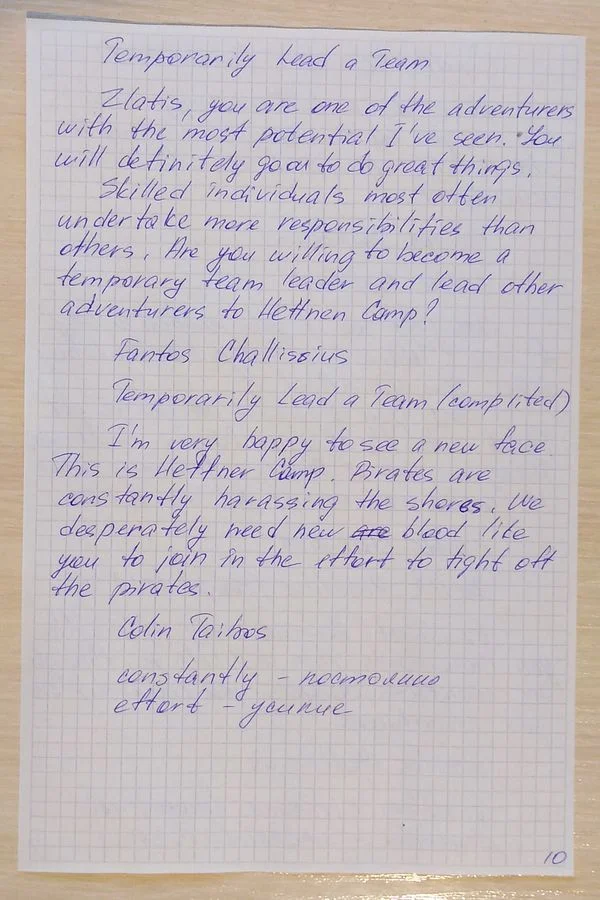 Temporarily Lead a Team
Zlatis, you are one of the adventurers
with the most potential I've seen. You
will definitely go on to do great things.
Skilled individuals most often
undertake more responsibilities than
others. Are you willing to become a
temporary team leader and lead other
adventurers to Heffnen Camp?
Fantos Challissius
Temporarily Lead a Team (complited)
I'm very happy to see a new face.
This is Heffner Camp. Pirates are
constantly harassing the shores. We
desperately need new are blood like
you to join in the effort to fight off
the pirates.
Colin Taibos
constantly - постоянно
effort - усилие
10